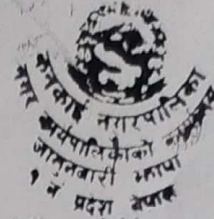 कनकाई नगरपालिका
नगर कार्यपालिकाको कार्यालय
झापा
१ नं प्रदेश नेपाल